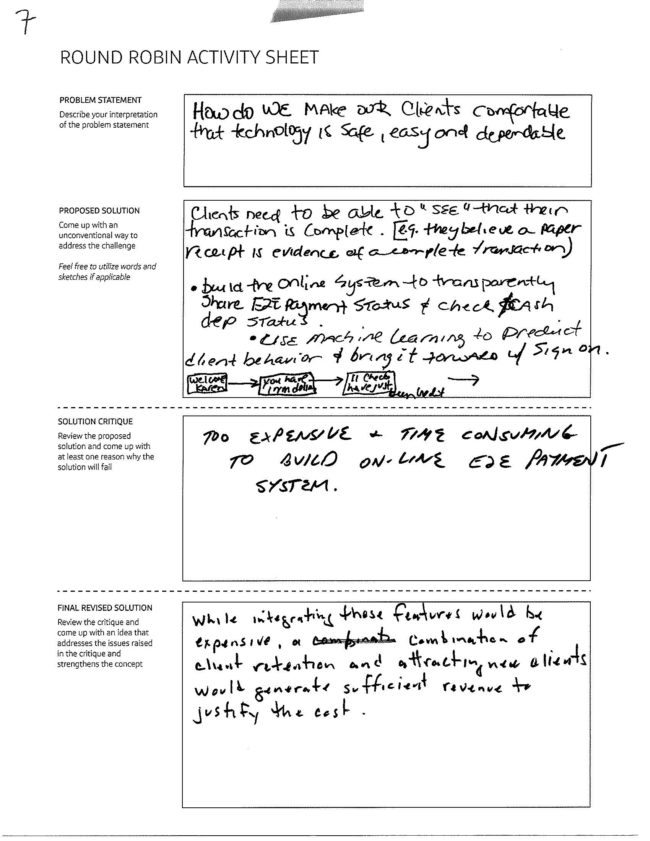 7
ROUND ROBIN ACTIVITY SHEET
PROBLEM STATEMENT
Describe your interpretation
of the problem statement
How do WE MAKE our Clients comfortable
that technology is safe, easy and dependable
PROPOSED SOLUTION
Come up with an
unconventional way to
address the challenge
Feel free to utilize words and
sketches if applicable
Clients need to be able to "SEE" that their
transaction is complete. [eg. they believe a paper
receipt is evidence of a complete transaction)
• build the online system to transparently
share E2E Payment Status & check & cash
dep status.
• USE machine learning to predict
client behavior & bring it forward w/ sign on.
Welcome
Karen
you have
1 mm dollar
11 checks
have just
SOLUTION CRITIQUE
Review the proposed
solution and come up with
at least one reason why the
solution will fail
TOO EXPENSIVE + TIME CONSUMING
TO BUILD ON-LINE E2E PAYMENT
SYSTEM.
FINAL REVISED SOLUTION
Review the critique and
come up with an idea that
addresses the issues raised
in the critique and
strengthens the concept
While integrating those features would be
expensive, a combination of
client retention and attracting new clients
would generate sufficient revenue to
justify the cost.